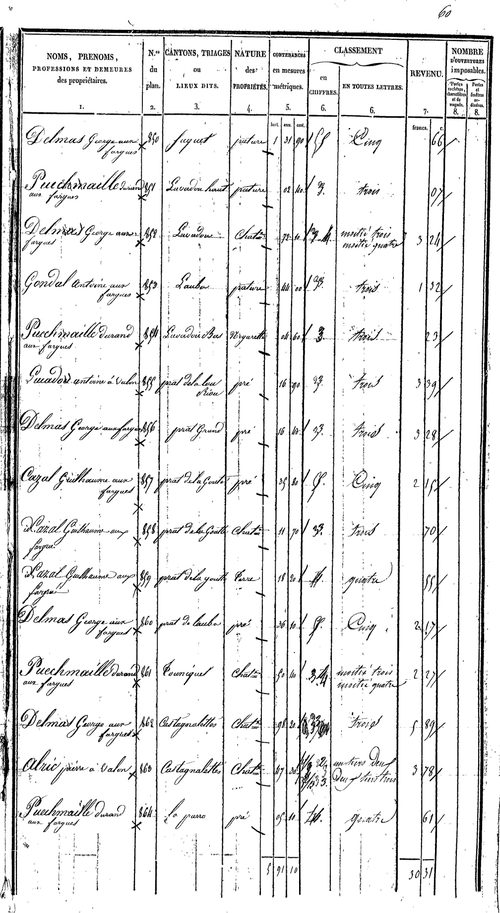 60
NOMS, PRENOMS,
PROFESSIONS ET DEMEURES
des propriétaires.
1.
N.os
du
plan.
2.
CANTONS, TRIAGES
ou
LIEUX DITS.
3.
NATURE
des
PROPRIÉTÉS.
4.
CONTENANCES
en mesures
métriques.
5.
CLASSEMENT
en
CHIFFRES.
6.
EN TOUTES LETTRES.
6.
REVENU.
7.
NOMBRE
D'OUVERTURES
imposables.
8.
8.
francs.
Delmas George aux fargues 850 fuguet pature 1 31 90 5 Cinq 66
Puechmaille durand aux fargues 851 Lavadou haut pature 02 40 3 trois 07
Delmas George aux fargues 852 Lavadou Chatne 72 10 3 4 moitié trois moitié quatre 3 24
Gondal antoine aux fargues 853 Lauba pature 44 00 3 trois 1 32
Puechmaille durand aux fargues 854 Lavadou Bas 04 60 3 trois 23
antoine à valon 855 prat de la pré 16 90 3 trois 3 39
Delmas George aux fargues 856 prat Grand pré 16 40 3 trois 3 28
Cazal Guilhaume aux fargues 857 prat de la Goute pré 35 80 5 Cinq 2 15
Cazal Guilhaume aux fargues 858 prat de la Goutte Chatne 11 70 3 trois 70
Cazal Guilhaume aux fargues 859 prat de la goutte terre 18 20 4 quatre 55
Delmas George aux fargues 860 prat de lauba pré 36 10 5 Cinq 2 17
Puechmaille durand aux fargues 861 touniquet Chatne 50 40 3 4 moitié trois moitié quatre 2 27
Delmas George aux fargues 862 Castagnalettes Chatne 98 20 3 trois 5 89
alric pierre à valon 863 Castagnalettes Chatne 47 un tiers Deux Deux tiers trois 3 78
Puechmaille durand aux fargues 864 La parro pré 05 10 4 quatre 61
5 91 10 30 31